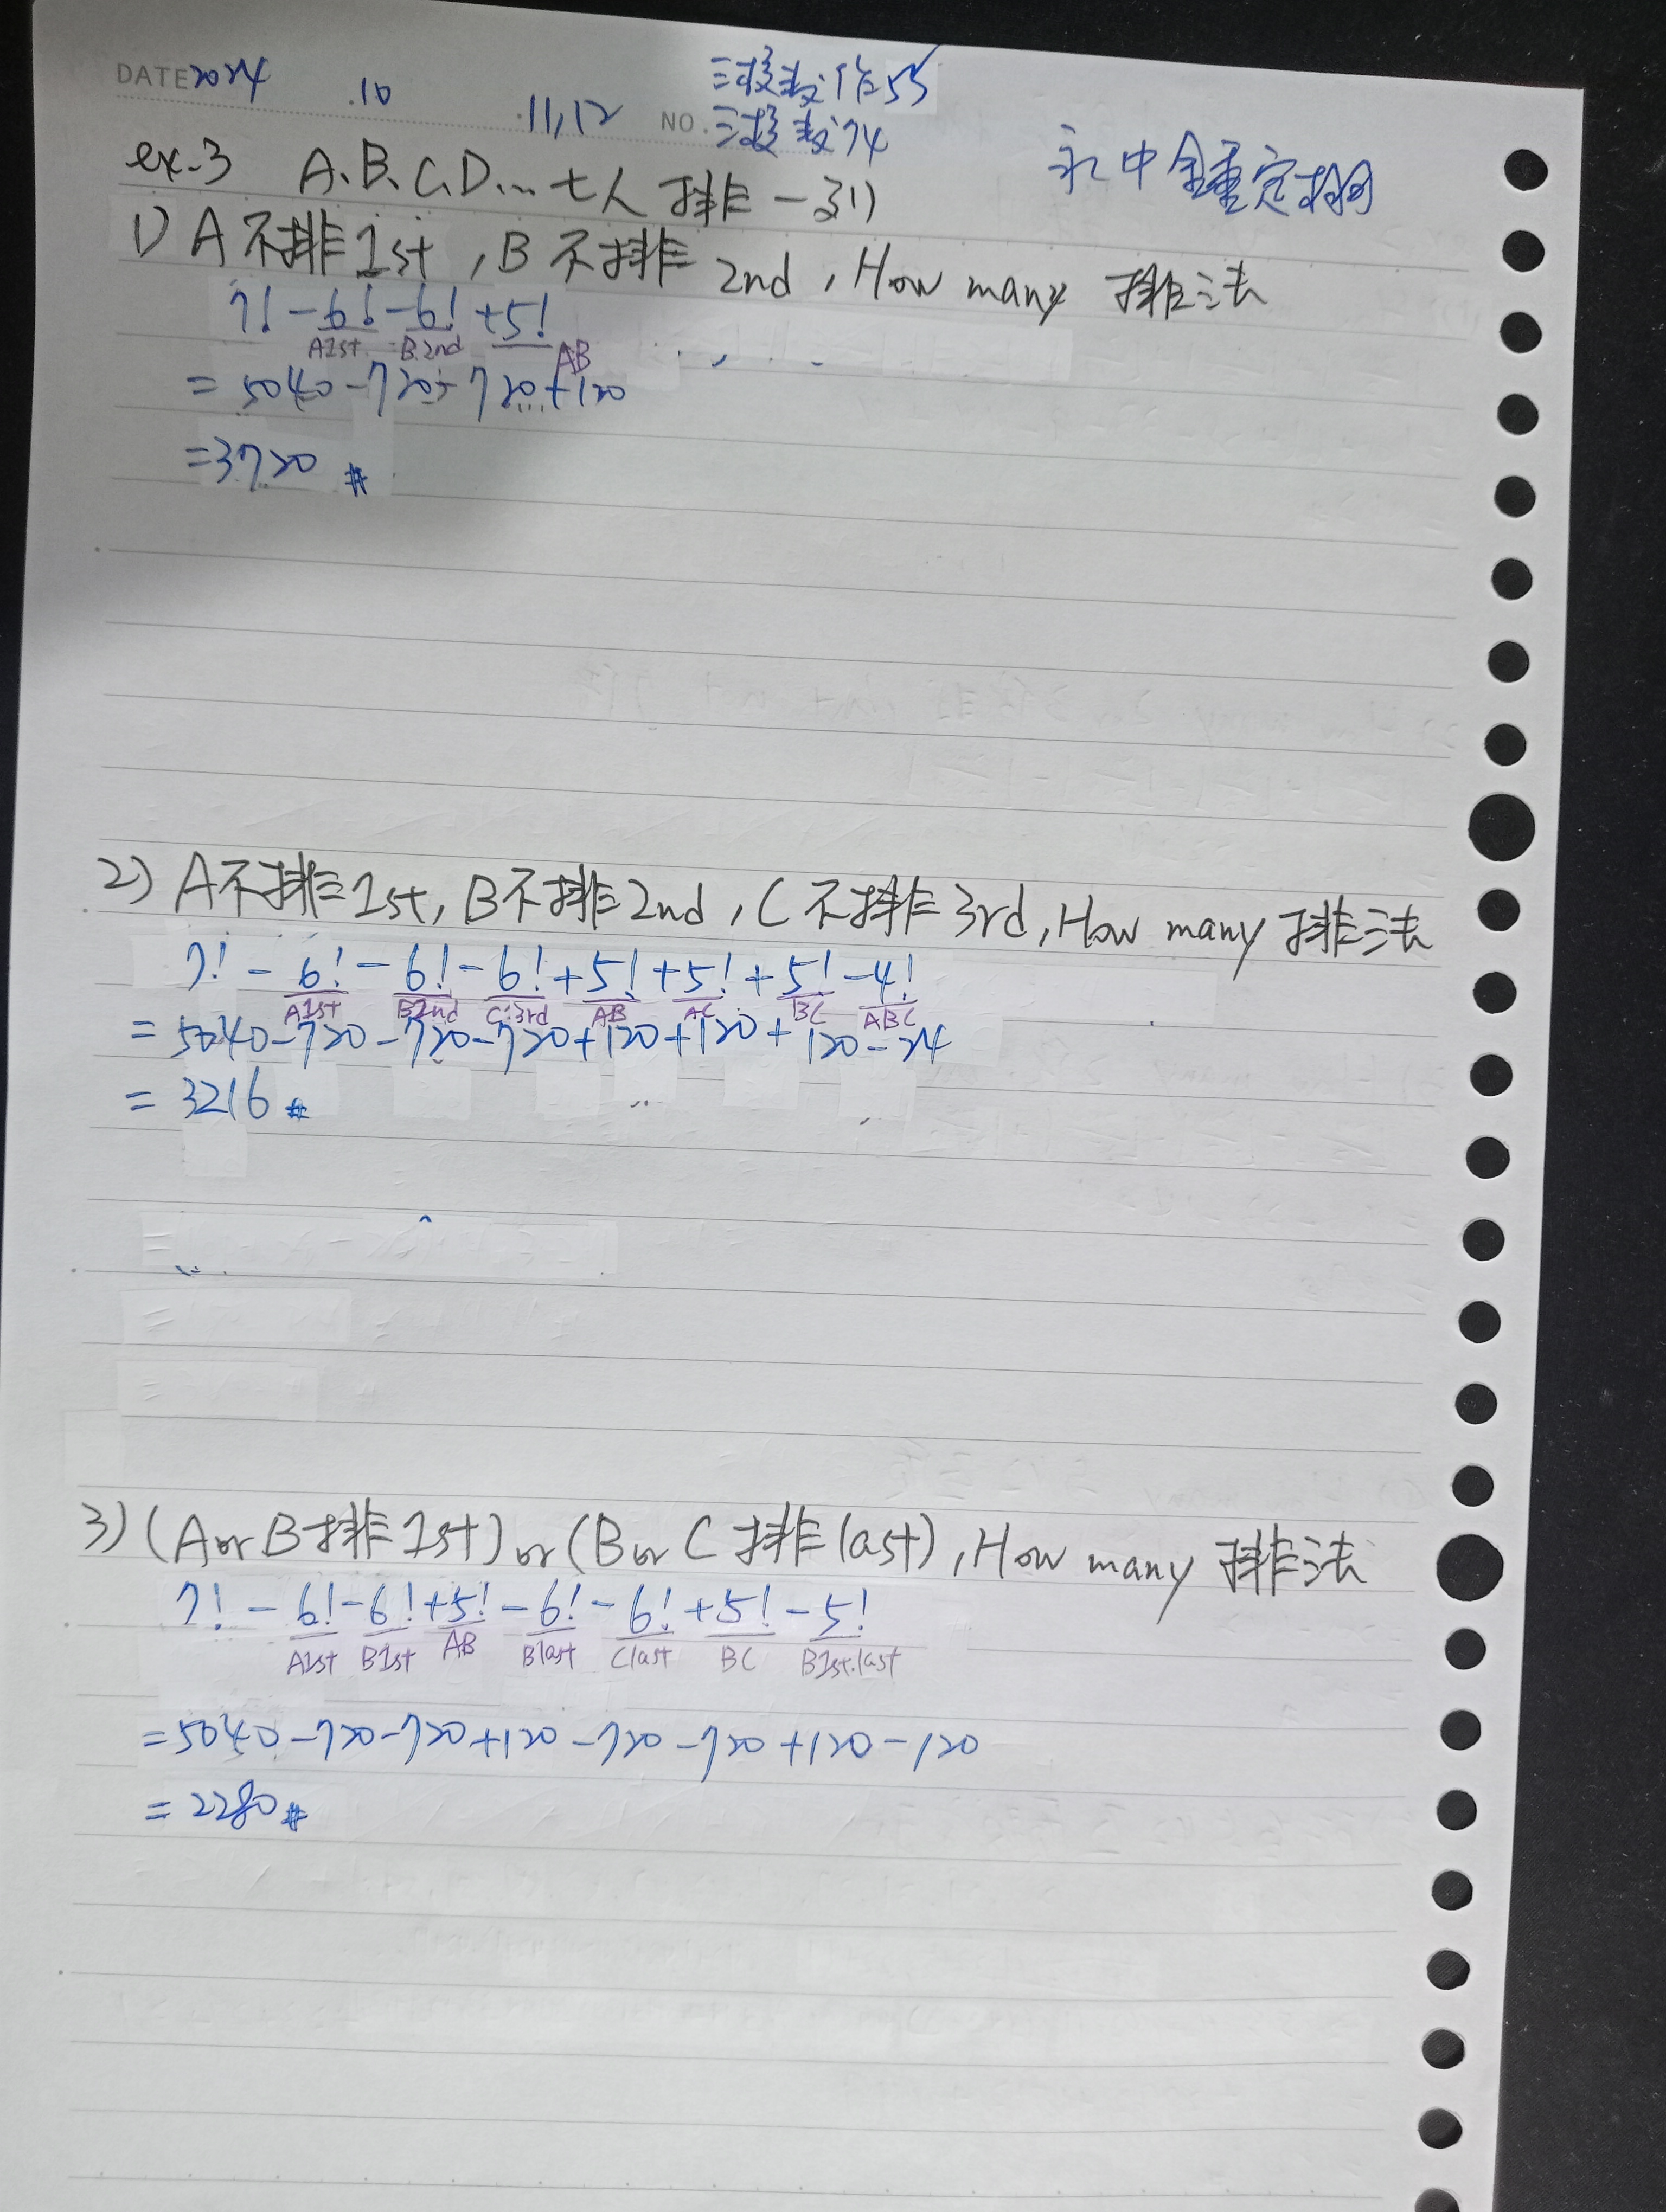 三技数作55
DATE 2024 .10 .11,12 NO. 三技数74
永中鍾定栩
ex-3 A、B、C、D... 七人排一列
1) A不排1st, B不排2nd, How many 排法
7! - 6! - 6! + 5!
A1st B2nd AB
= 5040 - 720 - 720 + 120
= 3720 #
2) A不排1st, B不排2nd, C不排3rd, How many 排法
7! - 6! - 6! - 6! + 5! + 5! + 5! - 4!
A1st B2nd C3rd AB AC BC ABC
= 5040 - 720 - 720 - 720 + 120 + 120 + 120 - 24
= 3216 #
3) (A or B 排 1st) or (B or C 排 last), How many 排法
7! - 6! - 6! + 5! - 6! - 6! + 5! - 5!
A1st B1st AB Blast Clast BC B1st.last
= 5040 - 720 - 720 + 120 - 720 - 720 + 120 - 120
= 2280 #